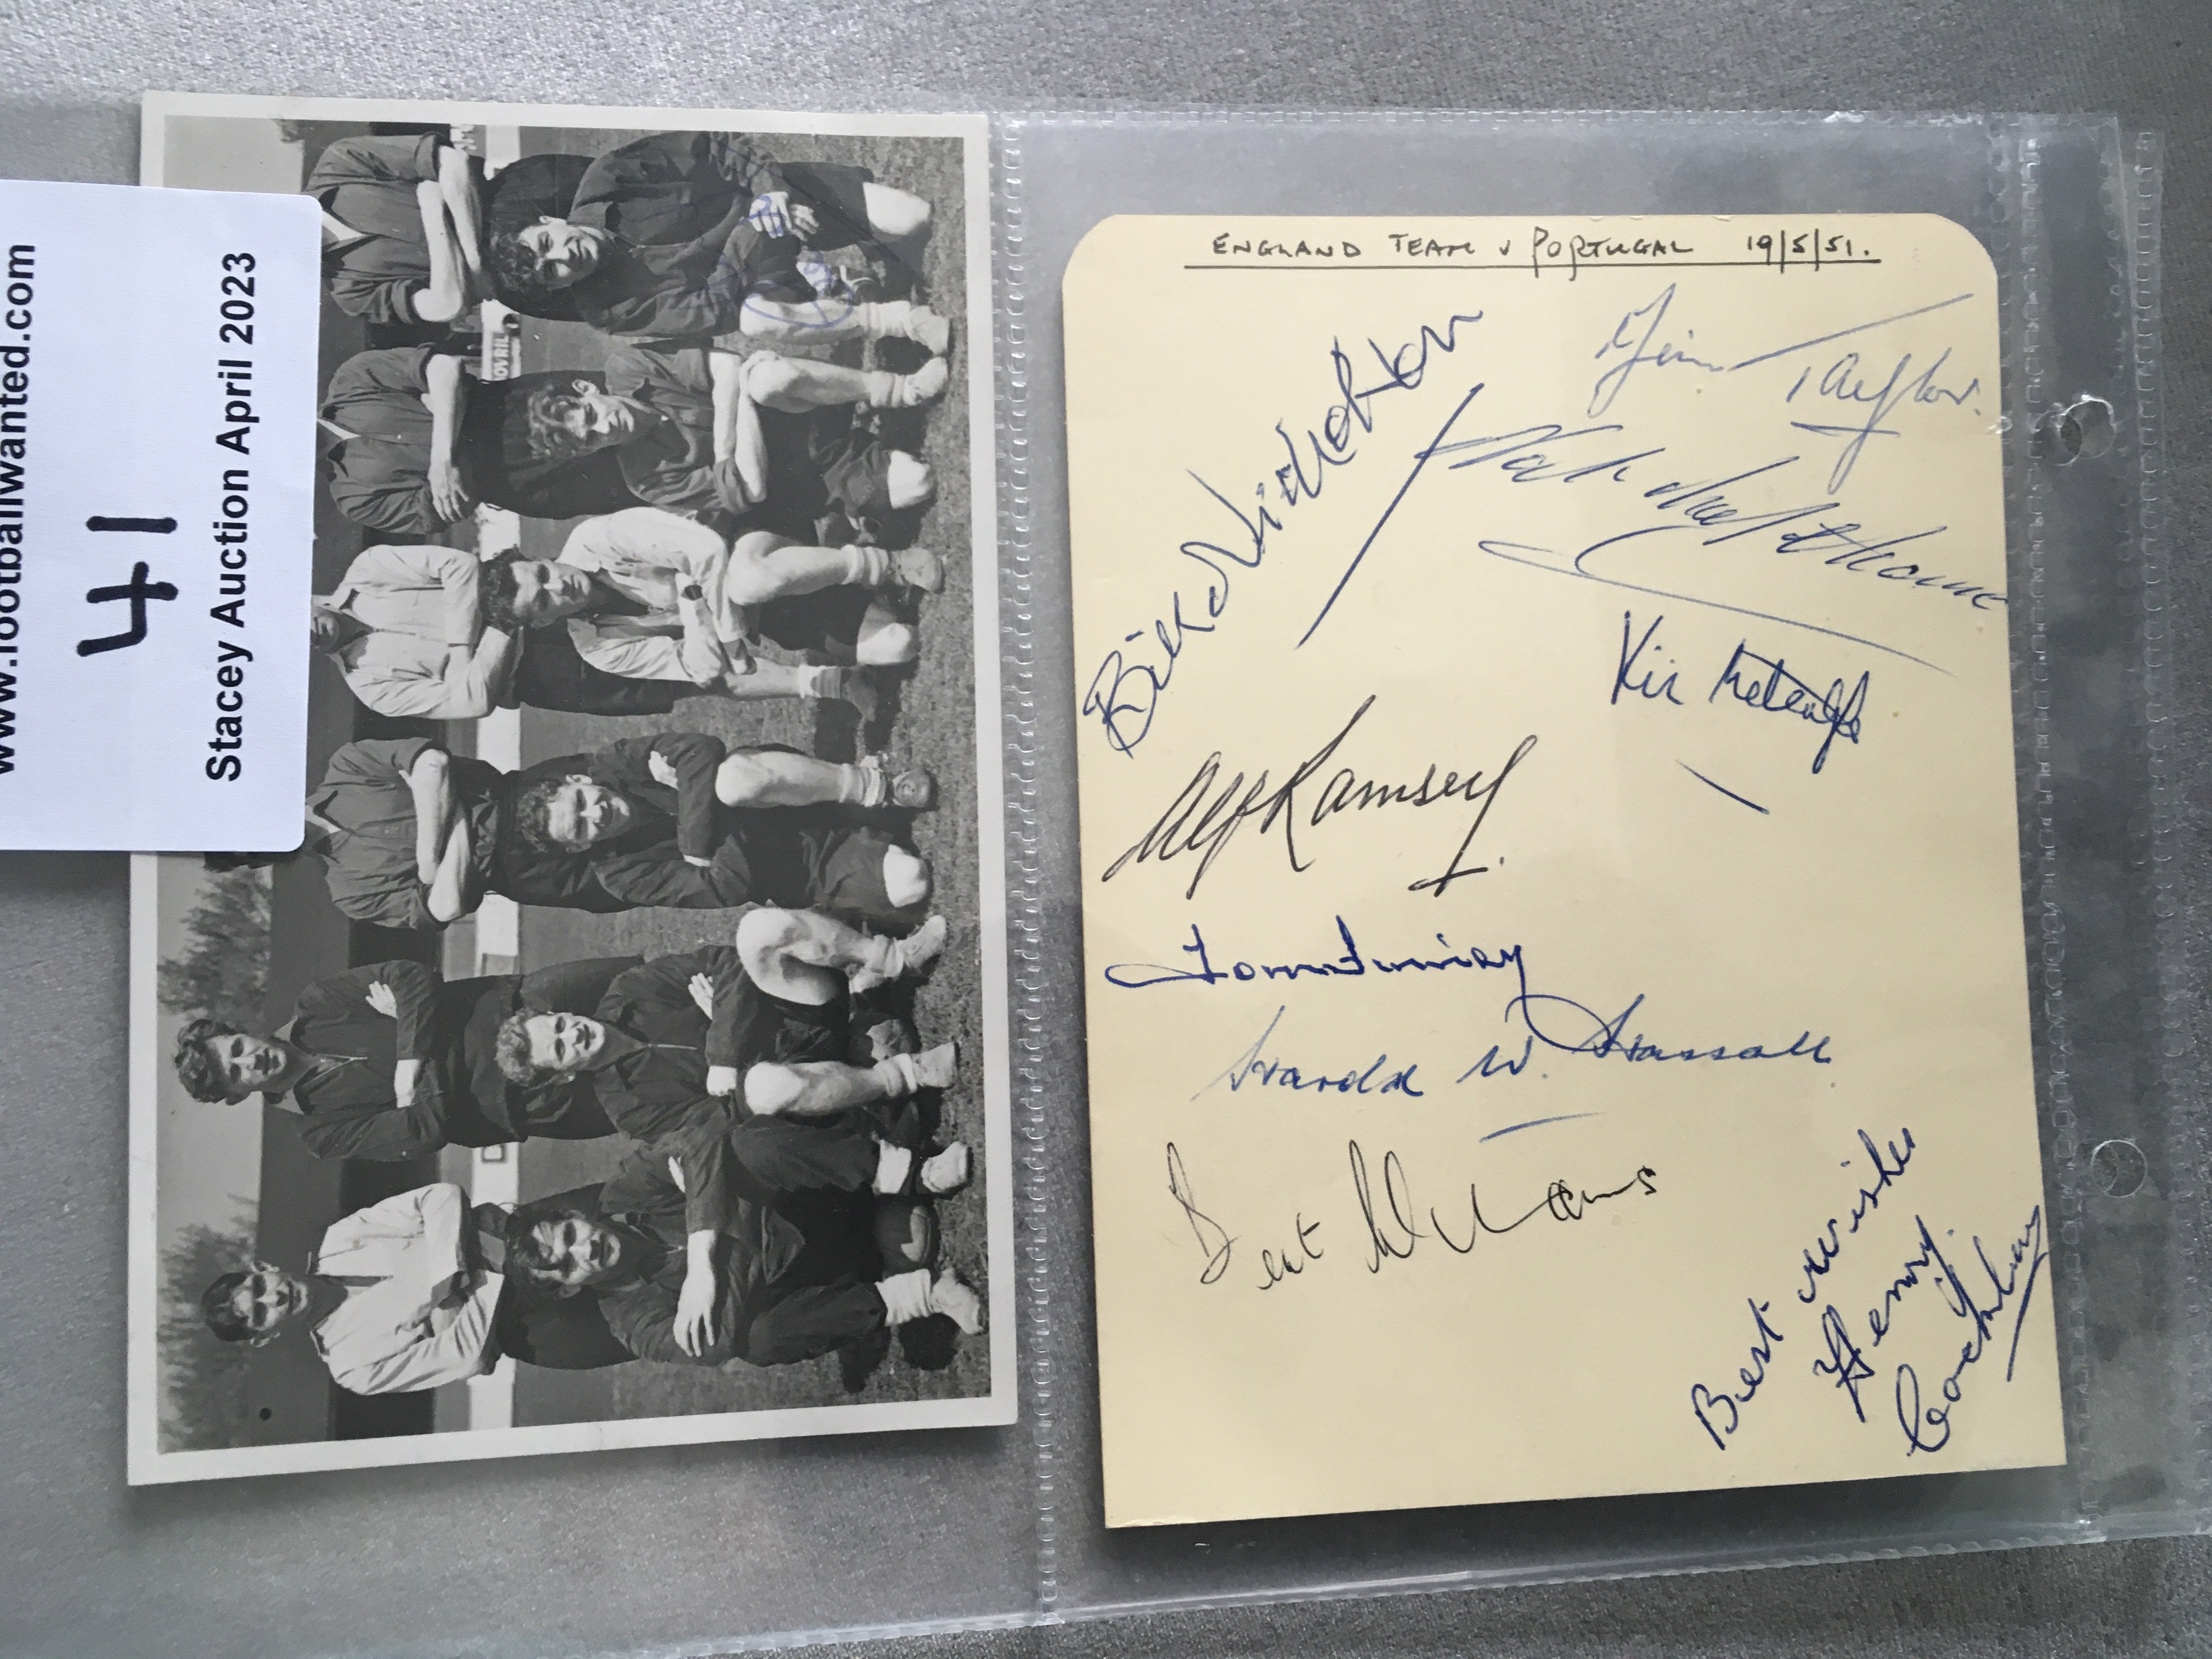 www.footballwanted.com
41
Stacey Auction April 2023
OVRIL
ENGLAND TEAM v PORTUGAL 19/5/51.
Jim Taylor.
Bill Nicholson
Nat Lofthouse
Vic Metcalfe
Alf Ramsey
Tom Finney
Harold W. Hassall
Bert Williams
Best wishes
Henry
Cockburn